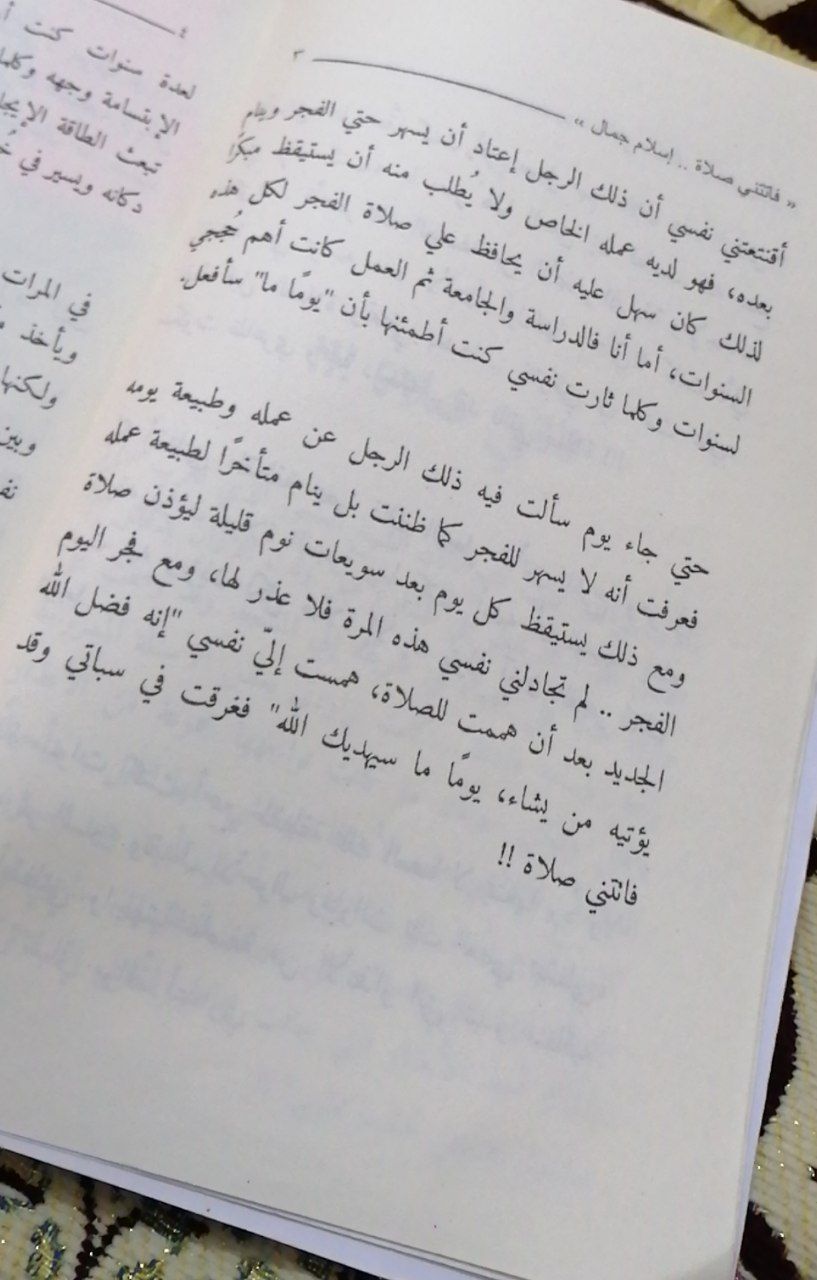 « فاتتني صلاة .. إسلام جمال »
٣
أقنتعتني نفسي أن ذلك الرجل إعتاد أن يسهر حتي الفجر وينام
بعده، فهو لديه عمله الخاص ولا يُطلب منه أن يستيقظ مبكرًا
لذلك كان سهل عليه أن يحافظ علي صلاة الفجر لكل هذه
السنوات، أما أنا فالدراسة والجامعة ثم العمل كانت أهم حُججي
لسنوات وكلما ثارت نفسي كنت أطمئنها بأن "يومًا ما" سأفعل.
حتي جاء يوم سألت فيه ذلك الرجل عن عمله وطبيعة يومه
فعرفت أنه لا يسهر للفجر كما ظننت بل ينام متأخرًا لطبيعة عمله
ومع ذلك يستيقظ كل يوم بعد سويعات نوم قليلة ليؤذن صلاة
الفجر .. لم تجادلني نفسي هذه المرة فلا عذر لها، ومع فجر اليوم
الجديد بعد أن هممت للصلاة، همست إليّ نفسي "إنه فضل الله
يؤتيه من يشاء، يومًا ما سيهديك الله" فغرقت في سباتي وقد
فاتتني صلاة !!
٤
لعدة سنوات كنت
الإبتسامة وجهه وكلما
تبعث الطاقة
دكانه ويسير في
في المرات
ويأخذ
ولكنها
وبين